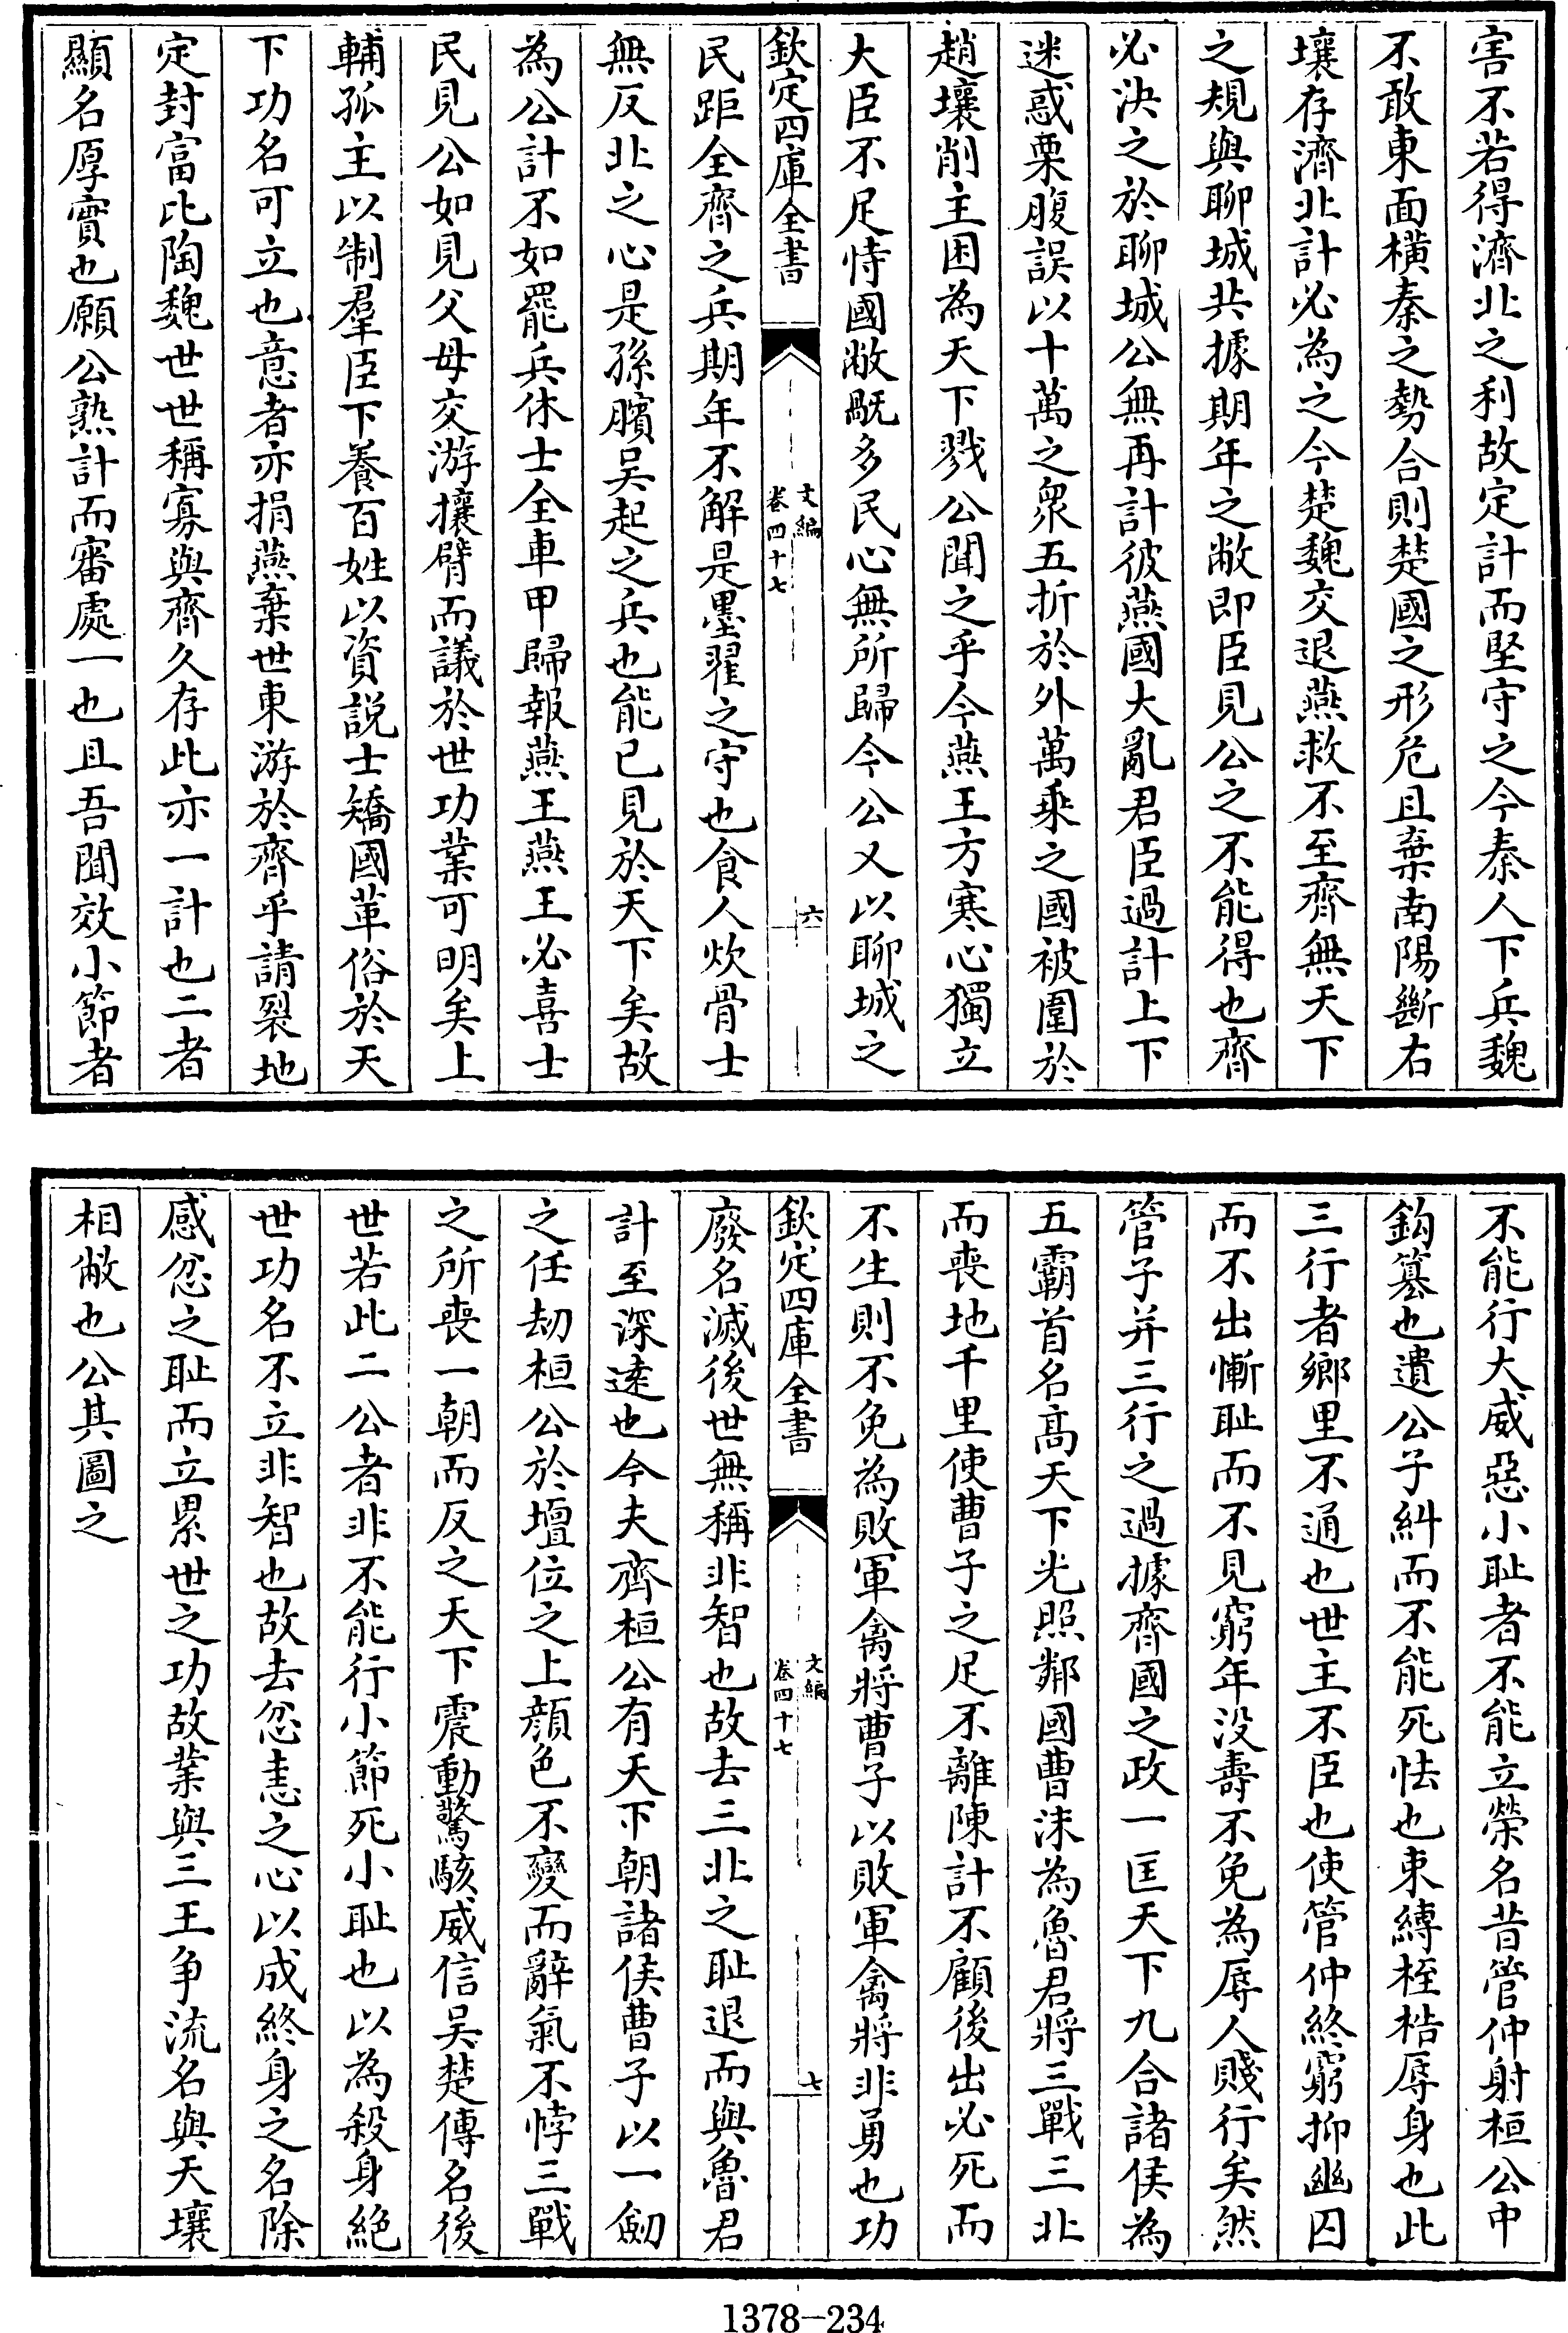 害不若得濟北之利故定計而堅守之今秦人下兵魏
不敢東面橫秦之勢合則楚國之形危且棄南陽斷右
壤存濟北計必為之今楚魏交退燕救不至齊無天下
之規與聊城共據期年之敝即臣見公之不能得也齊
必決之於聊城公無再計彼燕國大亂君臣過計上下
迷惑栗腹誤以十萬之衆五折於外萬乘之國被圍於
趙壤削主困為天下戮公聞之乎今燕王方寒心獨立
大臣不足恃國敝旤多民心無所歸今公又以聊城之
欽定四庫全書
文編
卷四十七
六
民距全齊之兵期年不解是墨翟之守也食人炊骨士
無反北之心是孫臏吴起之兵也能已見於天下矣故
為公計不如罷兵休士全車甲歸報燕王燕王必喜士
民見公如見父母交游攘臂而議於世功業可明矣上
輔孤主以制羣臣下養百姓以資説士矯國革俗於天
下功名可立也意者亦捐燕棄世東游於齊乎請裂地
定封富比陶魏世世稱寡與齊久存此亦一計也二者
顯名厚實也願公熟計而審處一也且吾聞效小節者
不能行大威惡小耻者不能立榮名昔管仲射桓公中
鈎篡也遺公子糾而不能死怯也束縛桎梏辱身也此
三行者鄉里不通也世主不臣也使管仲終窮抑幽囚
而不出慚耻而不見窮年没壽不免為辱人賤行矣然
管子并三行之過據齊國之政一匡天下九合諸侯為
五霸首名髙天下光照鄰國曹沫為魯君將三戰三北
而喪地千里使曹子之足不離陳計不顧後出必死而
不生則不免為敗軍禽將曹子以敗軍禽將非勇也功
欽定四庫全書
文編
卷四十七
七
廢名滅後世無稱非智也故去三北之耻退而與魯君
計至深逺也今夫齊桓公有天下朝諸侯曹子以一劒
之任劫桓公於壇位之上顔色不變而辭氣不悖三戰
之所喪一朝而反之天下震動驚駭威信吴楚傳名後
世若此二公者非不能行小節死小耻也以為殺身絶
世功名不立非智也故去忿恚之心以成終身之名除
感忿之耻而立累世之功故業與三王争流名與天壤
相敝也公其圖之
1378-234